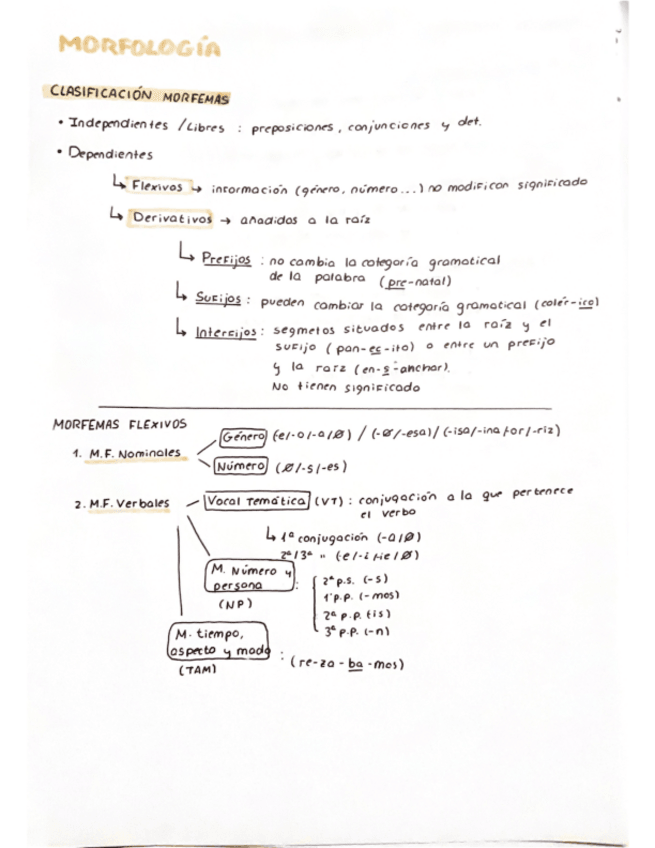 MORFOLOGÍA
CLASIFICACIÓN MORFEMAS
• Independientes / Libres : preposiciones, conjunciones y det.
• Dependientes
↳ Flexivos → información (género, número...) no modifican significado
↳ Derivativos → añadidos a la raíz
↳ Prefijos : no cambia la categoría gramatical
de la palabra (pre-natal)
↳ Sufijos : pueden cambiar la categoría gramatical (colér-ico)
↳ Interfijos : segmetos situados entre la raíz y el
sufijo (pan-ec-ito) o entre un prefijo
y la raíz (en-s-anchar).
No tienen significado
MORFEMAS FLEXIVOS
Género (e/-o/-a/Ø) / (-Ø/-esa) / (-isa/-ina/or/-riz)
1. M.F. Nominales
Número (Ø/-s/-es)
2. M.F. Verbales — Vocal Temática (VT) : conjugación a la que pertenece
el verbo
↳ 1ª conjugación (-a/Ø)
2ª/3ª " (-e/-i/-ie/Ø)
M. Número y
persona :
(NP)
2ª p.s. (-s)
1ª p.p. (-mos)
2ª p.p. (-is)
3ª p.p. (-n)
M. tiempo,
aspecto y modo : (re-za-ba-mos)
(TAM)